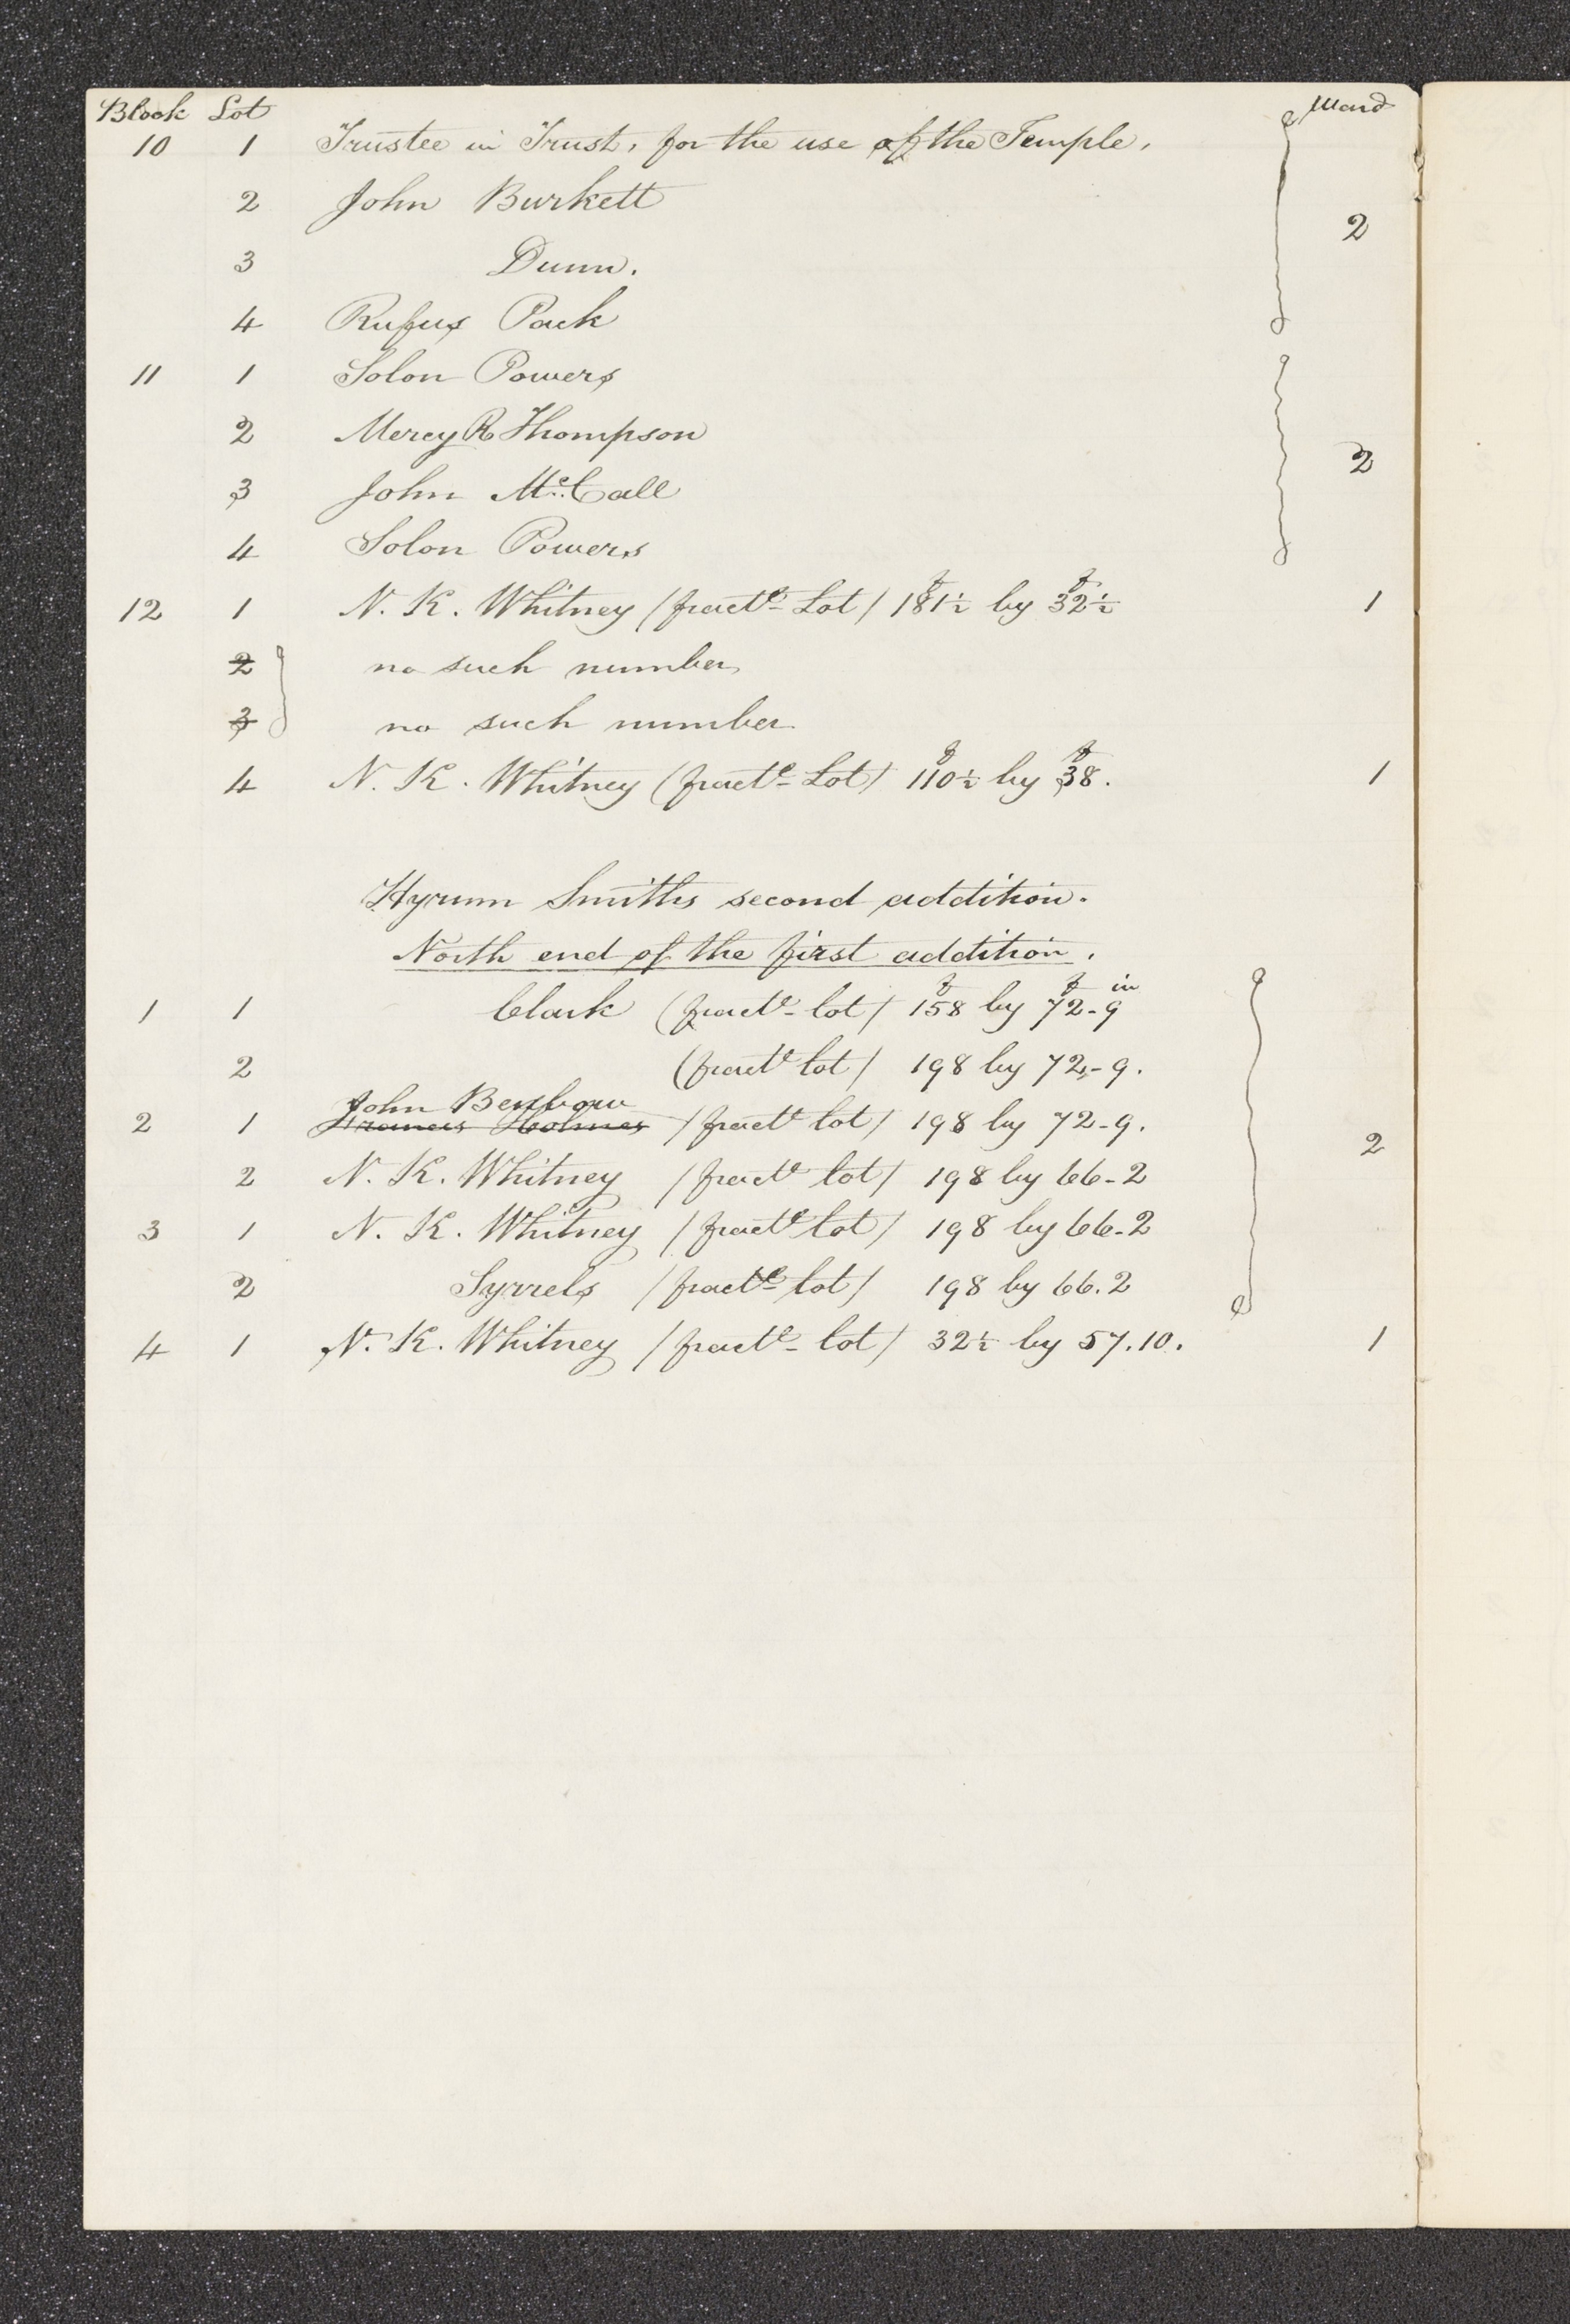 Block Lot Ward
10 1 Trustee in Trust, for the use of the Temple,
2 John Burkett
2
3 Dunn.
4 Rufus Pack
11 1 Solon Powers
2 Mercy R Thompson
2
3 John Mc. Call
4 Solon Powers
12 1 N. K. Whitney (fractl Lot) 181½ f by 32½ f 1
2 no such number
3 no such number
4 N. K. Whitney (fractl Lot) 110½ f by 38 f. 1
Hyrum Smiths second addition.
North end of the first addition.
1 1 Clark (fractl lot) 158 f by 72 f - 9 in
2 (fractl lot) 198 by 72-9.
John Benbow
2 1 Francis Holmes (fractl lot) 198 by 72-9.
2
2 N. K. Whitney (fractl lot) 198 by 66-2
3 1 N. K. Whitney (fractl lot) 198 by 66-2
2 Syrrels (fractl lot) 198 by 66.2
4 1 N. K. Whitney (fractl lot) 32½ by 57.10. 1